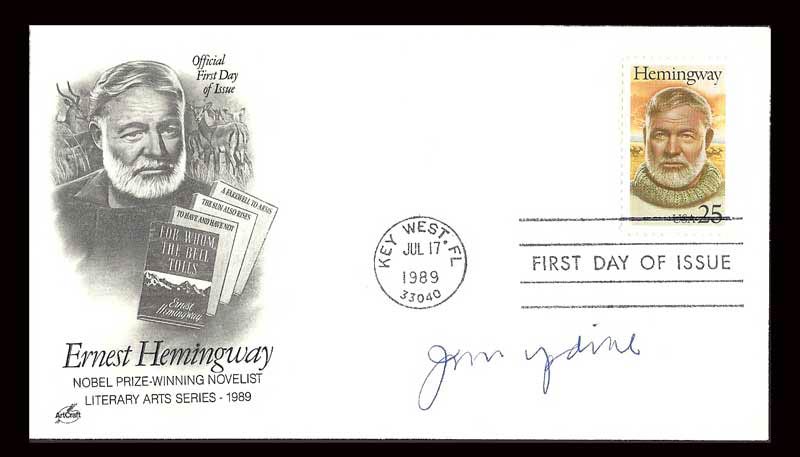 Official
First Day
of Issue
A FAREWELL TO ARMS
THE SUN ALSO RISES
TO HAVE AND HAVE NOT
FOR WHOM
THE BELL
TOLLS
Ernest
Hemingway
Ernest Hemingway
NOBEL PRIZE-WINNING NOVELIST
LITERARY ARTS SERIES - 1989
ArtCraft
KEY WEST, FL
JUL 17
1989
33040
Hemingway
USA 25
FIRST DAY OF ISSUE